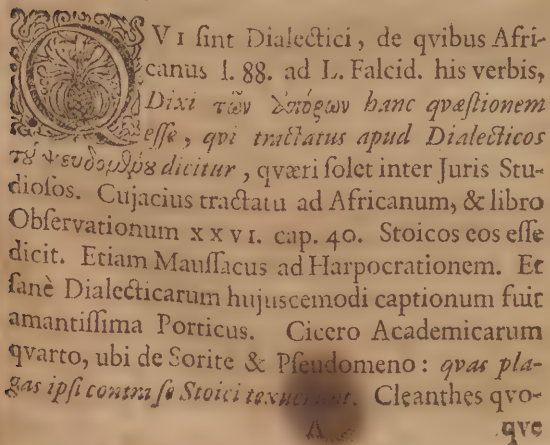 QVI sint Dialectici, de qvibus Afri-
canus l. 88. ad L. Falcid. his verbis,
Dixi τῶν ἀπόρων hanc qvæstionem
esse, qvi tractatus apud Dialecticos
τȣ͂ ψευδομθμȣ dicitur, qværi solet inter Juris Stu-
diosos. Cujacius tractatu ad Africanum, & libro
Observationum XXVI. cap. 40. Stoicos eos esse
dicit. Etiam Maussacus ad Harpocrationem. Et
sanè Dialecticarum hujuscemodi captionum fuit
amantissima Porticus. Cicero Academicarum
qvarto, ubi de Sorite & Pseudomeno: qvas pla-
gas ipsi contra se Stoici texuerunt. Cleanthes qvo-
A qve